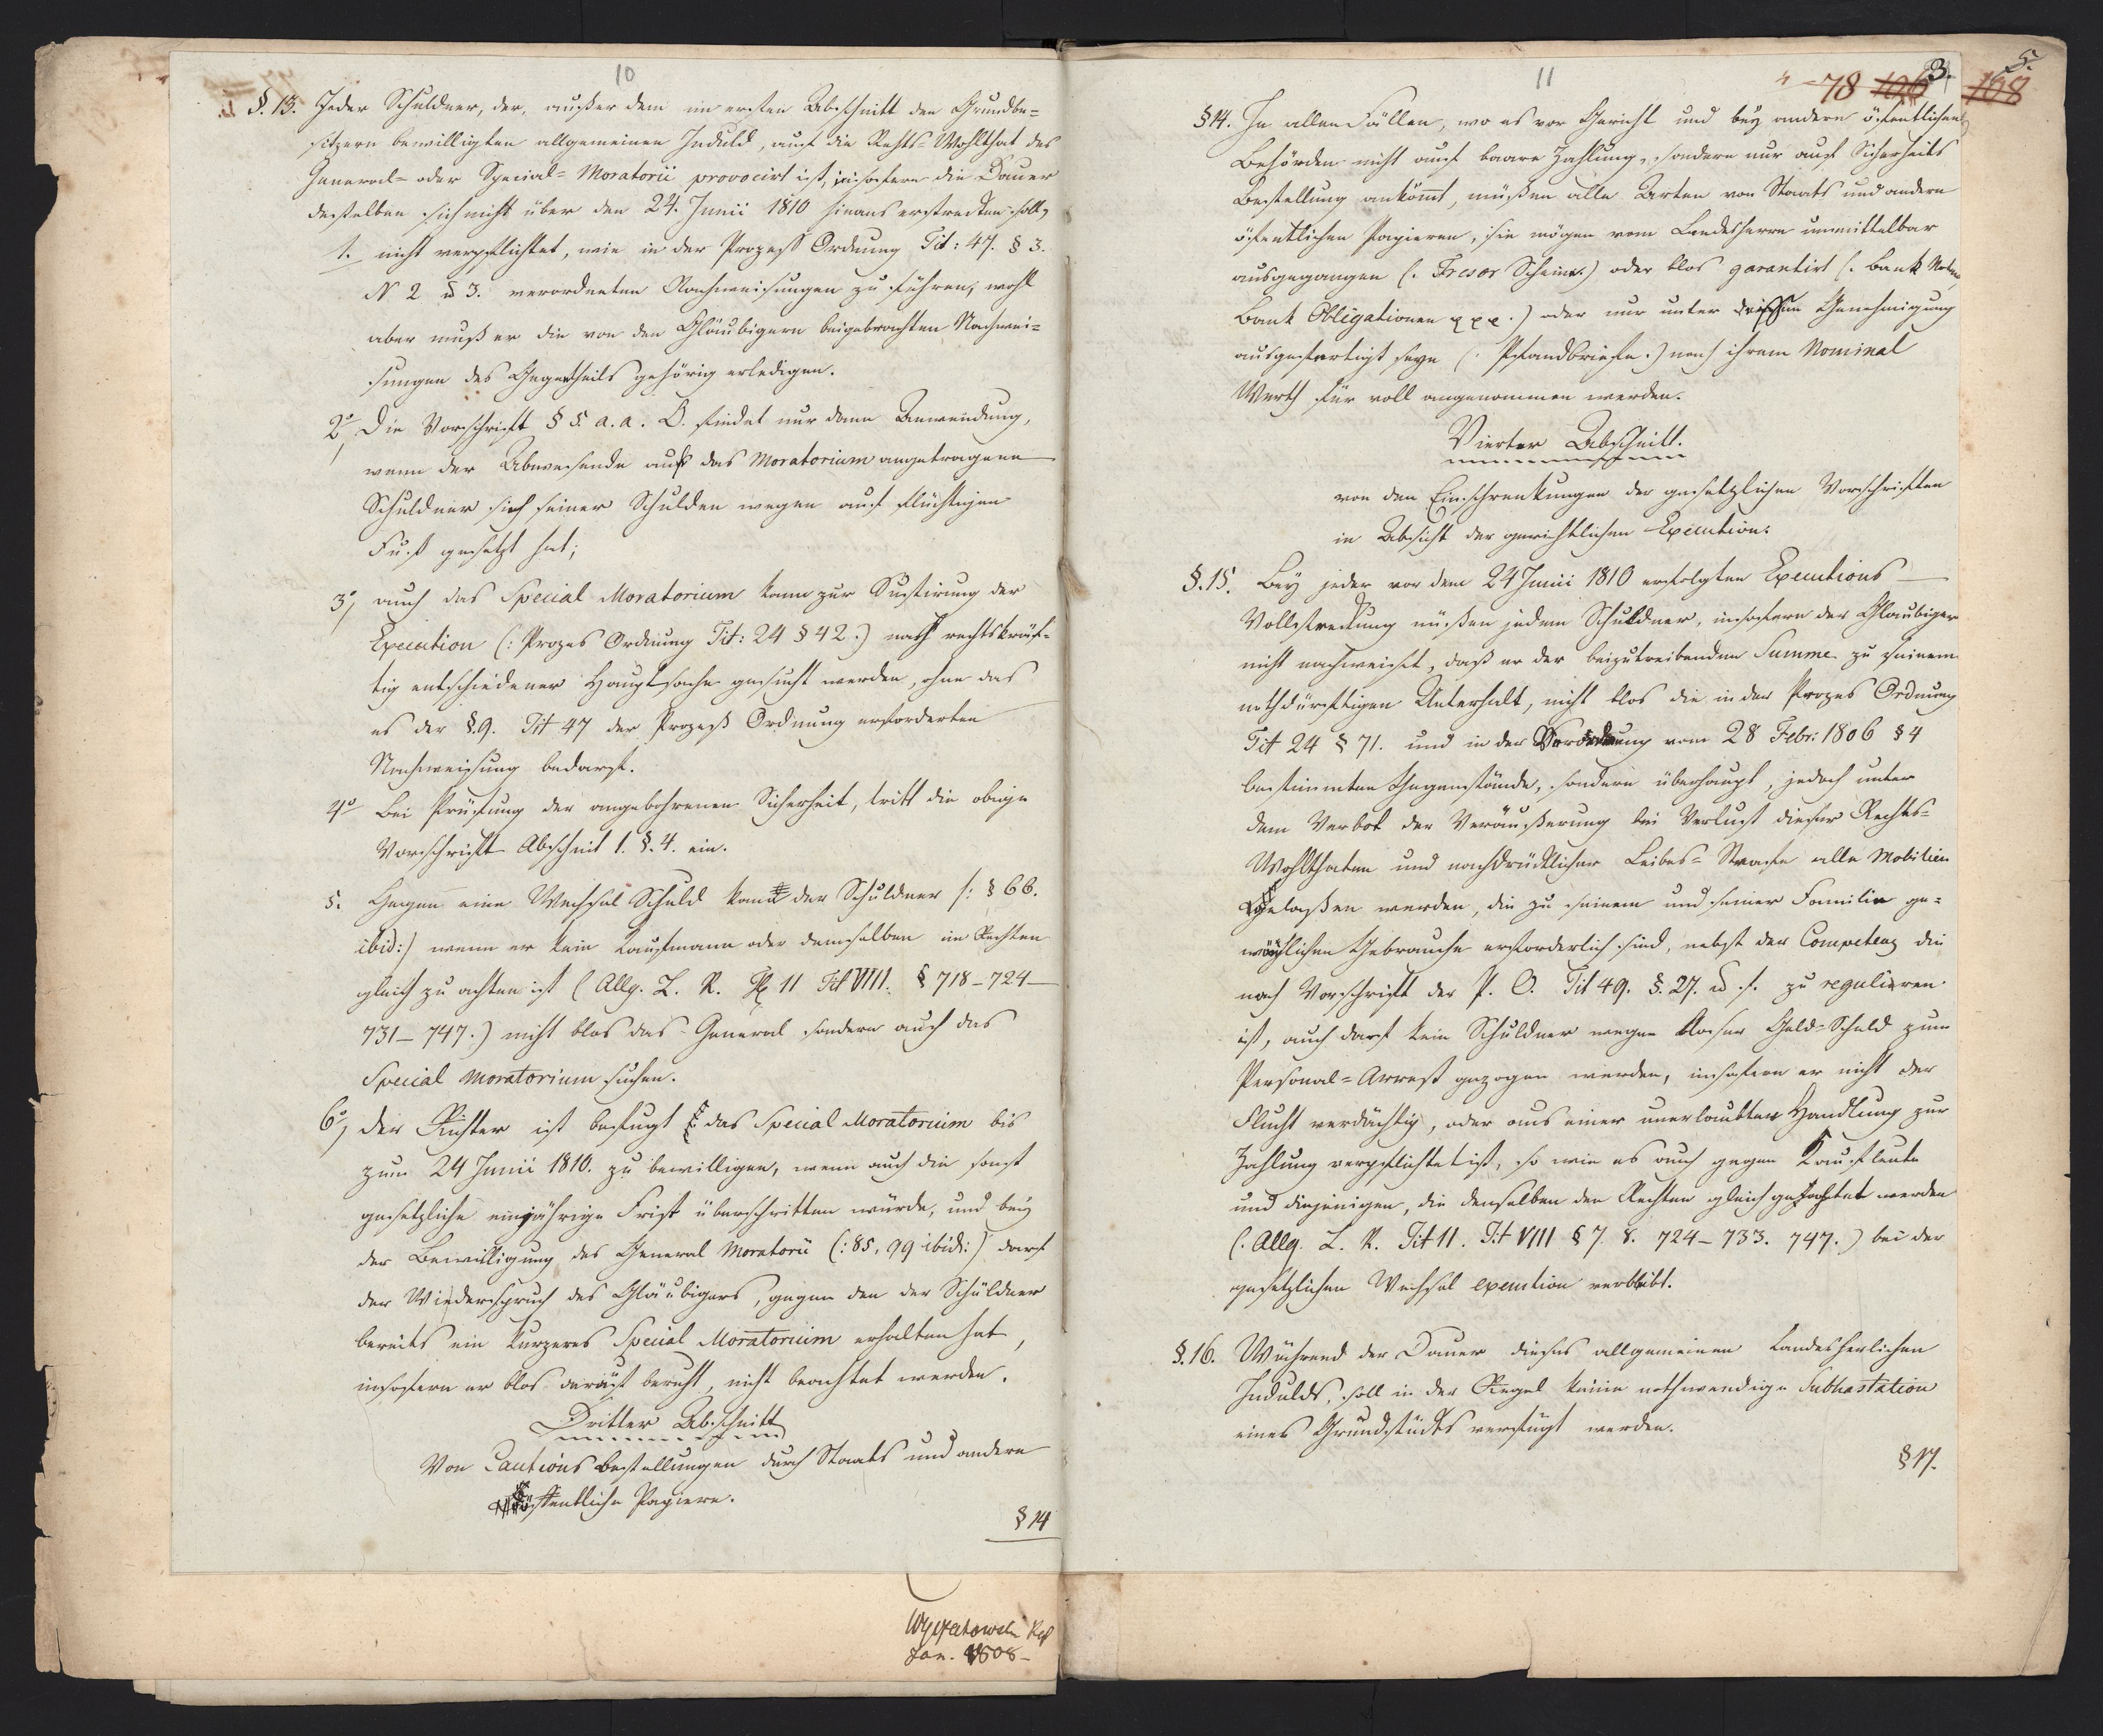 10
§. 13. Jeder Schuldner, der, außer dem im ersten Abschnitt den Grundbe-
sitzern bewilligten allgemeinen Induld, auf die Rechts-Wohlthat des
General- oder Special-Moratorii provocirt ist, insofern die Dauer
desselben sich nicht über den 24. Junii 1810 hinaus erstrecken soll,
1. nicht verpflichtet, wie in der Prozeß Ordnung Tit: 47. § 3.
N 2 u 3. verordneten Nachweisungen zu führen, wohl
aber muß er die von den Gläubigern beigebrachten Nachwei-
sungen des Gegentheils gehörig erledigen.
2. Die Vorschrift § 5. a. a. O. findet nur dann Anwendung,
wenn der Abwesende auf das Moratorium angetragene
Schuldner sich seiner Schulden wegen auf flüchtigen
Fuß gesetzt hat;
3, auch das Special Moratorium kann zur Sustirung der
Execution (: Prozes Ordnung Tit: 24 § 42.) nach rechtskräf-
tig entschiedener Hauptsache gesucht werden, ohne das
es der §. 9. Tit 47 der Prozeß Ordnung erforderten
Nachweisung bedarf.
4 Bei Prüfung der angebohrenen Sicherheit, tritt die obige
Vorschrift Abschnit 1. §. 4. ein.
5. Gegen eine Wechsel Schuld kann der Schuldner /: § 66.
ibid:/ wenn er kein Kaufmann oder demselben im Rechten
gleich zu achten ist (Allg. L. R. 11 Tit VIII. § 718-724-
731-747.) nicht blos das General sondern auch das
Special Moratorium suchen.
6, der Richter ist befugt das Special Moratorium bis
zum 24 Junii 1810. zu bewilligen, wenn auch die sonst
gesetzliche einjährige Frist überschritten würde, und bey
der Bewilligung des General Moratorii (: 85, 99 ibid:) darf
der Wiederspruch des Gläubigers, gegen den der Schuldner
bereits ein kurzeres Special Moratorium erhalten hat,
insofern er blos darauf beruht, nicht beachtet werden.
Dritter Abschnitt
Von Cautions Bestellungen durch Staats und andere
öffentliche Papiere.
§ 14
Jan. 1808-
11
78 106 3. 168 5.
§ 14. In allen Fällen, wo es vor Gericht und bey andern öfentlichen
Behörden nicht auf baare Zahlung, sondern nur auf Sicherheits
Bestellung ankömt, müßen alle Arten von Staats und andern
öfentlichen Papieren, sie mögen vom Landesherrn unmittelbar
ausgegangen (. Tresor Scheine.) oder blos garantirt (. Bank Noten
Bank Obligationen xxx.) oder nur unter dessen Genehmigung
ausgefertigt seyn (. Pfandbriefe.) nach ihrem Nominal
Werth für voll angenommen werden.
Vierter Abschnitt.
von den Einschrenkungen der gesetzlichen Vorschriften
in Absicht der gerichtlichen Execution.
§. 15. Bey jeder vor dem 24 Junii 1810 erfolgten Executions
Vollstreckung müßen jedem Schuldner, insofern der Glaubiger
nicht nachweiset, daß er der beizutreibenden Summe zu seinem
nothdürftigen Unterhalt, nicht blos die in der Prozes Ordnung
Tit 24 § 71. und in der Verordnung vom 28 Febr: 1806 § 4
bestimmten Gegenstände, sondern überhaupt, jedoch unter
dem Verbot der Veräußerung bei Verlust dieser Rechts-
Wohlthaten und nachdrücklicher Leibes-Strafe alle Mobilien
gelaßen werden, die zu seinem und seiner Familie ge-
wöhlichen Gebrauche erforderlich sind, nebst der Competenz die
nach Vorschrift der P. O. Tit 49. §. 27. u. f. zu reguliren
ist, auch darf kein Schuldner wegen bloser Geld-Schuld zum
Personal-Arrest gezogen werden, insofern er nicht der
Flucht verdächtig, oder aus einer unerlaubten Handlung zur
Zahlung verpflichtet ist, so wie es auch gegen Kaufleute
und diejenigen, die denselben den Rechten gleich geachtet werden
(. Allg. L. R. Tit 11. Tit VIII § 7. 8. 724-733. 747.) bei der
gesetzlichen Wechsel execution verbleibt.
§. 16. Während der Dauer dieses allgemeinen Landesherlichen
Indulds, soll in der Regel keine nothwendige Subhastation
eines Grundstücks verfügt werden.
§ 17.